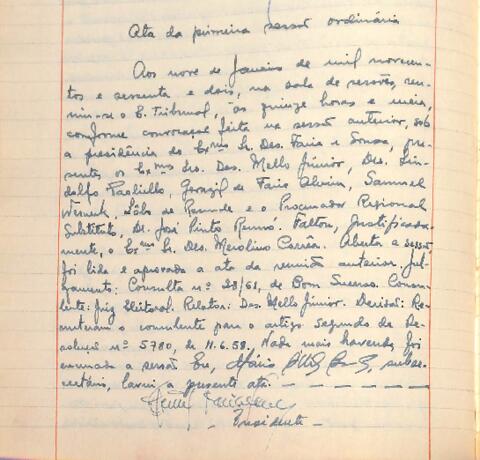 Ata da primeira sessão ordinária
Aos nove de Janeiro de mil novecen-
tos e sessenta e dois, na sala de sessões, reu-
niu-se o E. Tribunal, às quinze horas e meia,
conforme convocação feita na sessão anterior, sob
a presidência do Exmº Sr. Des. Faria e Sousa, pre-
sentes os Exmºs Srs. Des. Mello Júnior, Des. Lin-
dolfo Paoliello, Gorazil de Faria Alvim, Samuel
Werneck, Lôbo de Rezende e o Procurador Regional
Substituto, Dr. José Pinto Rennó. Faltou, justificada-
mente, o Exmº Sr. Des. Merolino Corrêa. Aberta a sessão
foi lida e aprovada a ata da reunião anterior. Jul-
gamento: Consulta nº 28/61, de Bom Sucesso. Consu-
lente: Juiz Eleitoral. Relator: Des. Mello Júnior. Decisão: Re-
meteram o consulente para o artigo segundo da Re-
solução nº 5780, de 11.6.58. Nada mais havendo, foi
encerrada a sessão. Eu, subse-
cretário, lavrei a presente ata. — — — — — —
— Presidente —